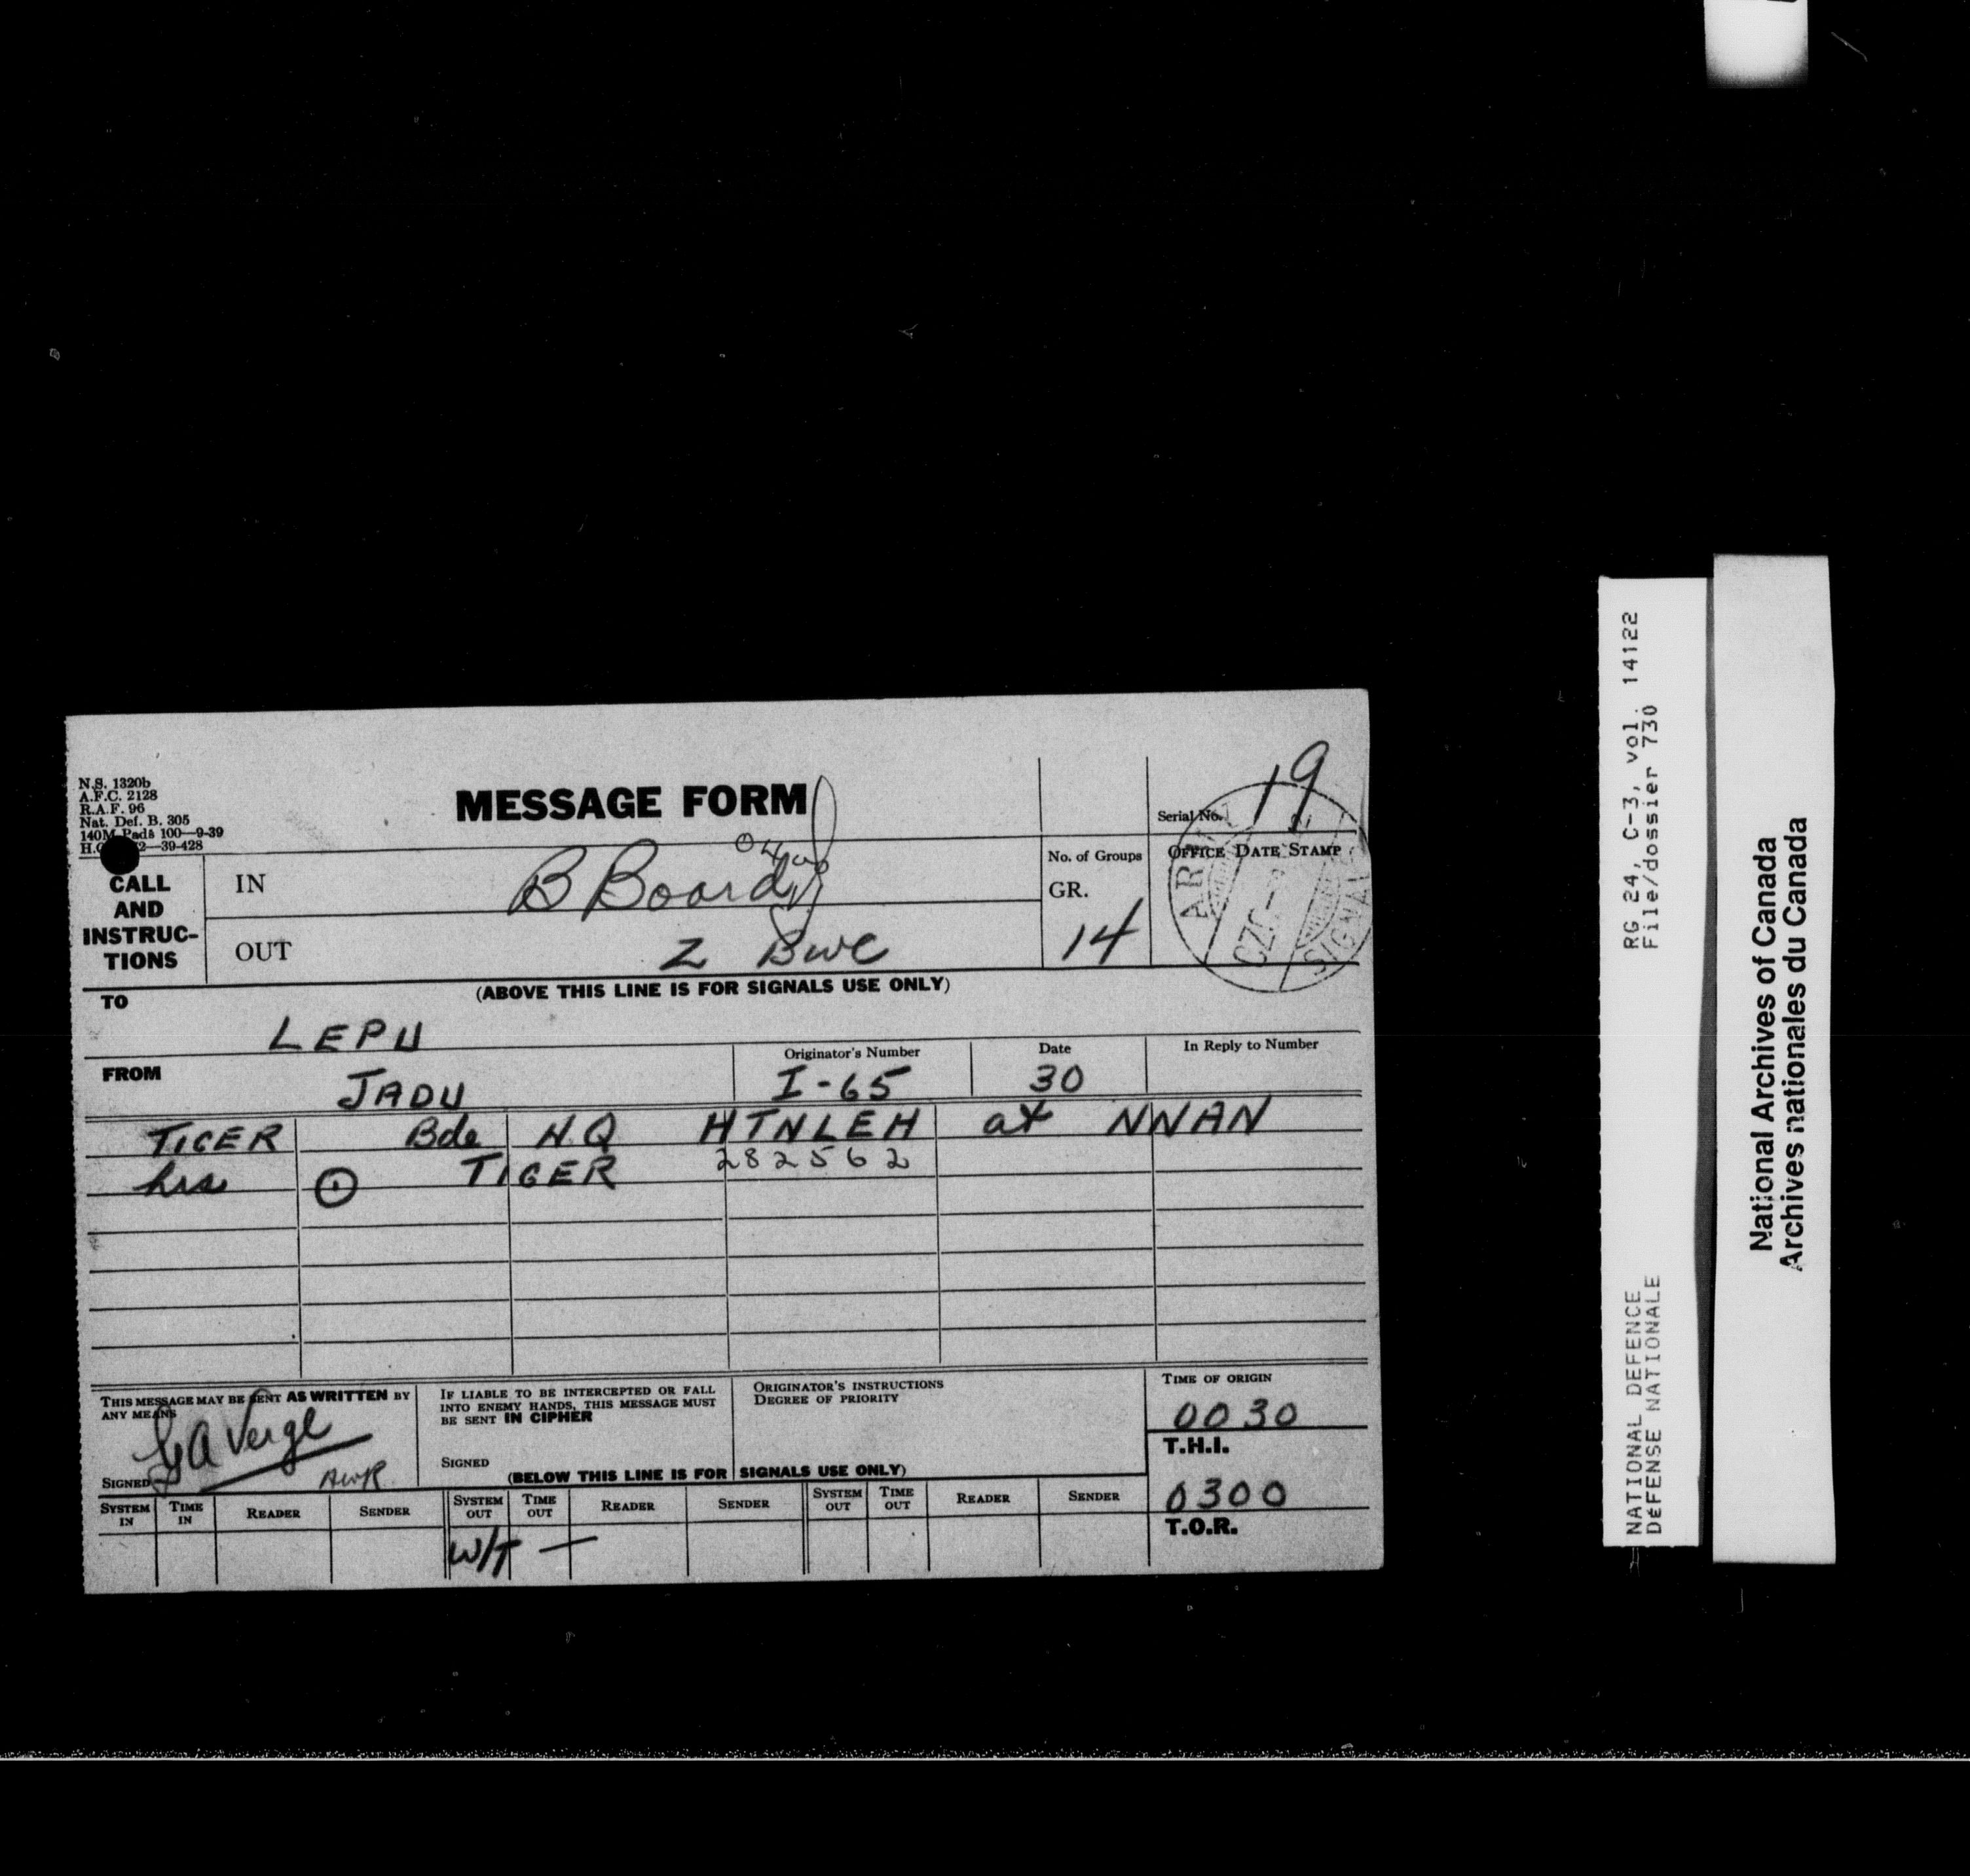 N.S. 1320b
A.F.C. 2128
R.A.F. 96
Nat. Def. B. 305
140M Pads 100—9-39
H.Q. 2—39-428
MESSAGE FORM
Serial No. 19
CALL AND INSTRUC-TIONS
IN B Board
OUT Z BWC
No. of Groups
GR.
14
OFFICE DATE STAMP
(ABOVE THIS LINE IS FOR SIGNALS USE ONLY)
TO
LEPU
FROM
JADU
Originator's Number
I-65
Date
30
In Reply to Number
TIGER Bde HQ HTNLEH at NNAN
282562
hrs TIGER
THIS MESSAGE MAY BE SENT AS WRITTEN BY
ANY MEANS
SIGNED
IF LIABLE TO BE INTERCEPTED OR FALL
INTO ENEMY HANDS, THIS MESSAGE MUST
BE SENT IN CIPHER
SIGNED
ORIGINATOR'S INSTRUCTIONS
DEGREE OF PRIORITY
TIME OF ORIGIN
0030
T.H.I.
0300
T.O.R.
(BELOW THIS LINE IS FOR SIGNALS USE ONLY)
SYSTEM IN TIME IN READER SENDER SYSTEM OUT TIME OUT READER SENDER SYSTEM OUT TIME OUT READER SENDER
W/T —
RG 24, C-3, vol. 14122
File/dossier 730
NATIONAL DEFENCE
DÉFENSE NATIONALE
National Archives of Canada
Archives nationales du Canada